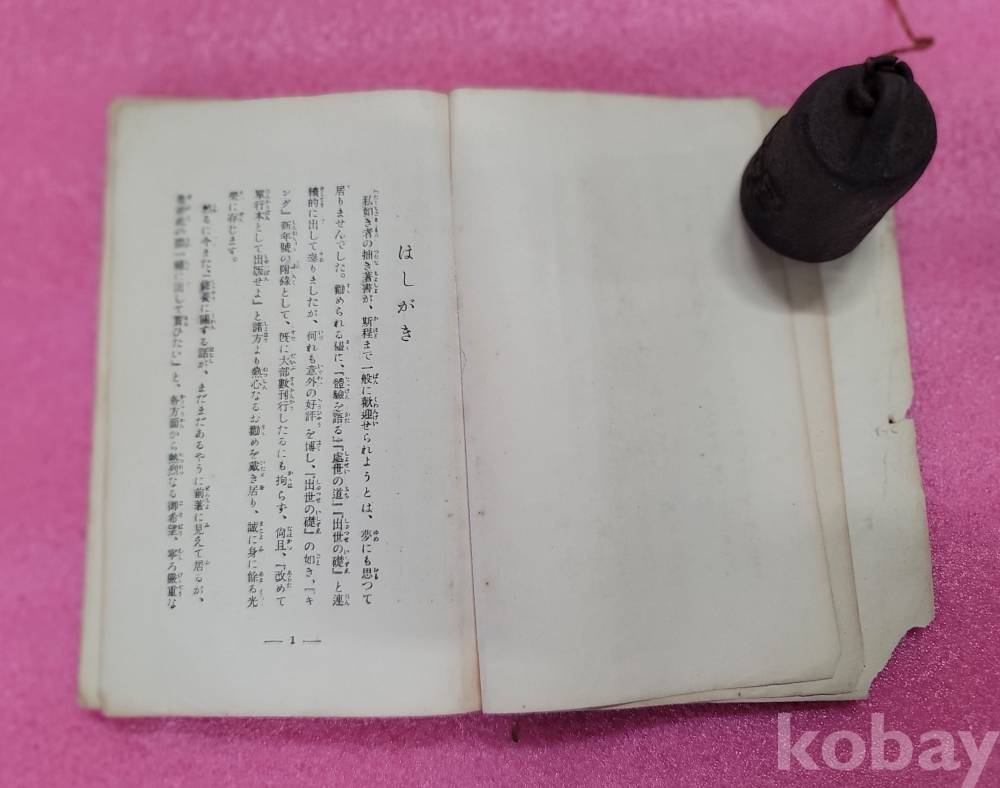 はしがき
私如き者の拙き著書が、斯程まで一般に歡迎せられようとは、夢にも思つて
居りませんでした。勸められる儘に、『體驗を語る』『處世の道』『出世の礎』と連
續的に出して參りましたが、何れも意外の好評を博し、『出世の礎』の如き、『キ
ング』新年號の附錄として、既に大部數刊行したるにも拘らず、尙且、『改めて
單行本として出版せよ』と諸方よりも熱心なるお勸めを戴き居り、誠に身に餘る光
榮に存じます。
然るに今また、修養に關する話が、まだまだあるやうに前著に見えて居るが、
一緖に出して貰ひたい』と、各方面から熱烈なる御希望、寧ろ嚴重な
— 1 —
kobay